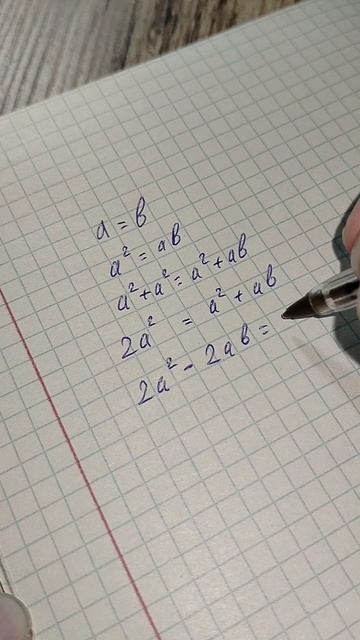 a = b
a² = ab
a² + a² = a² + ab
2a² = a² + ab
2a² - 2ab =